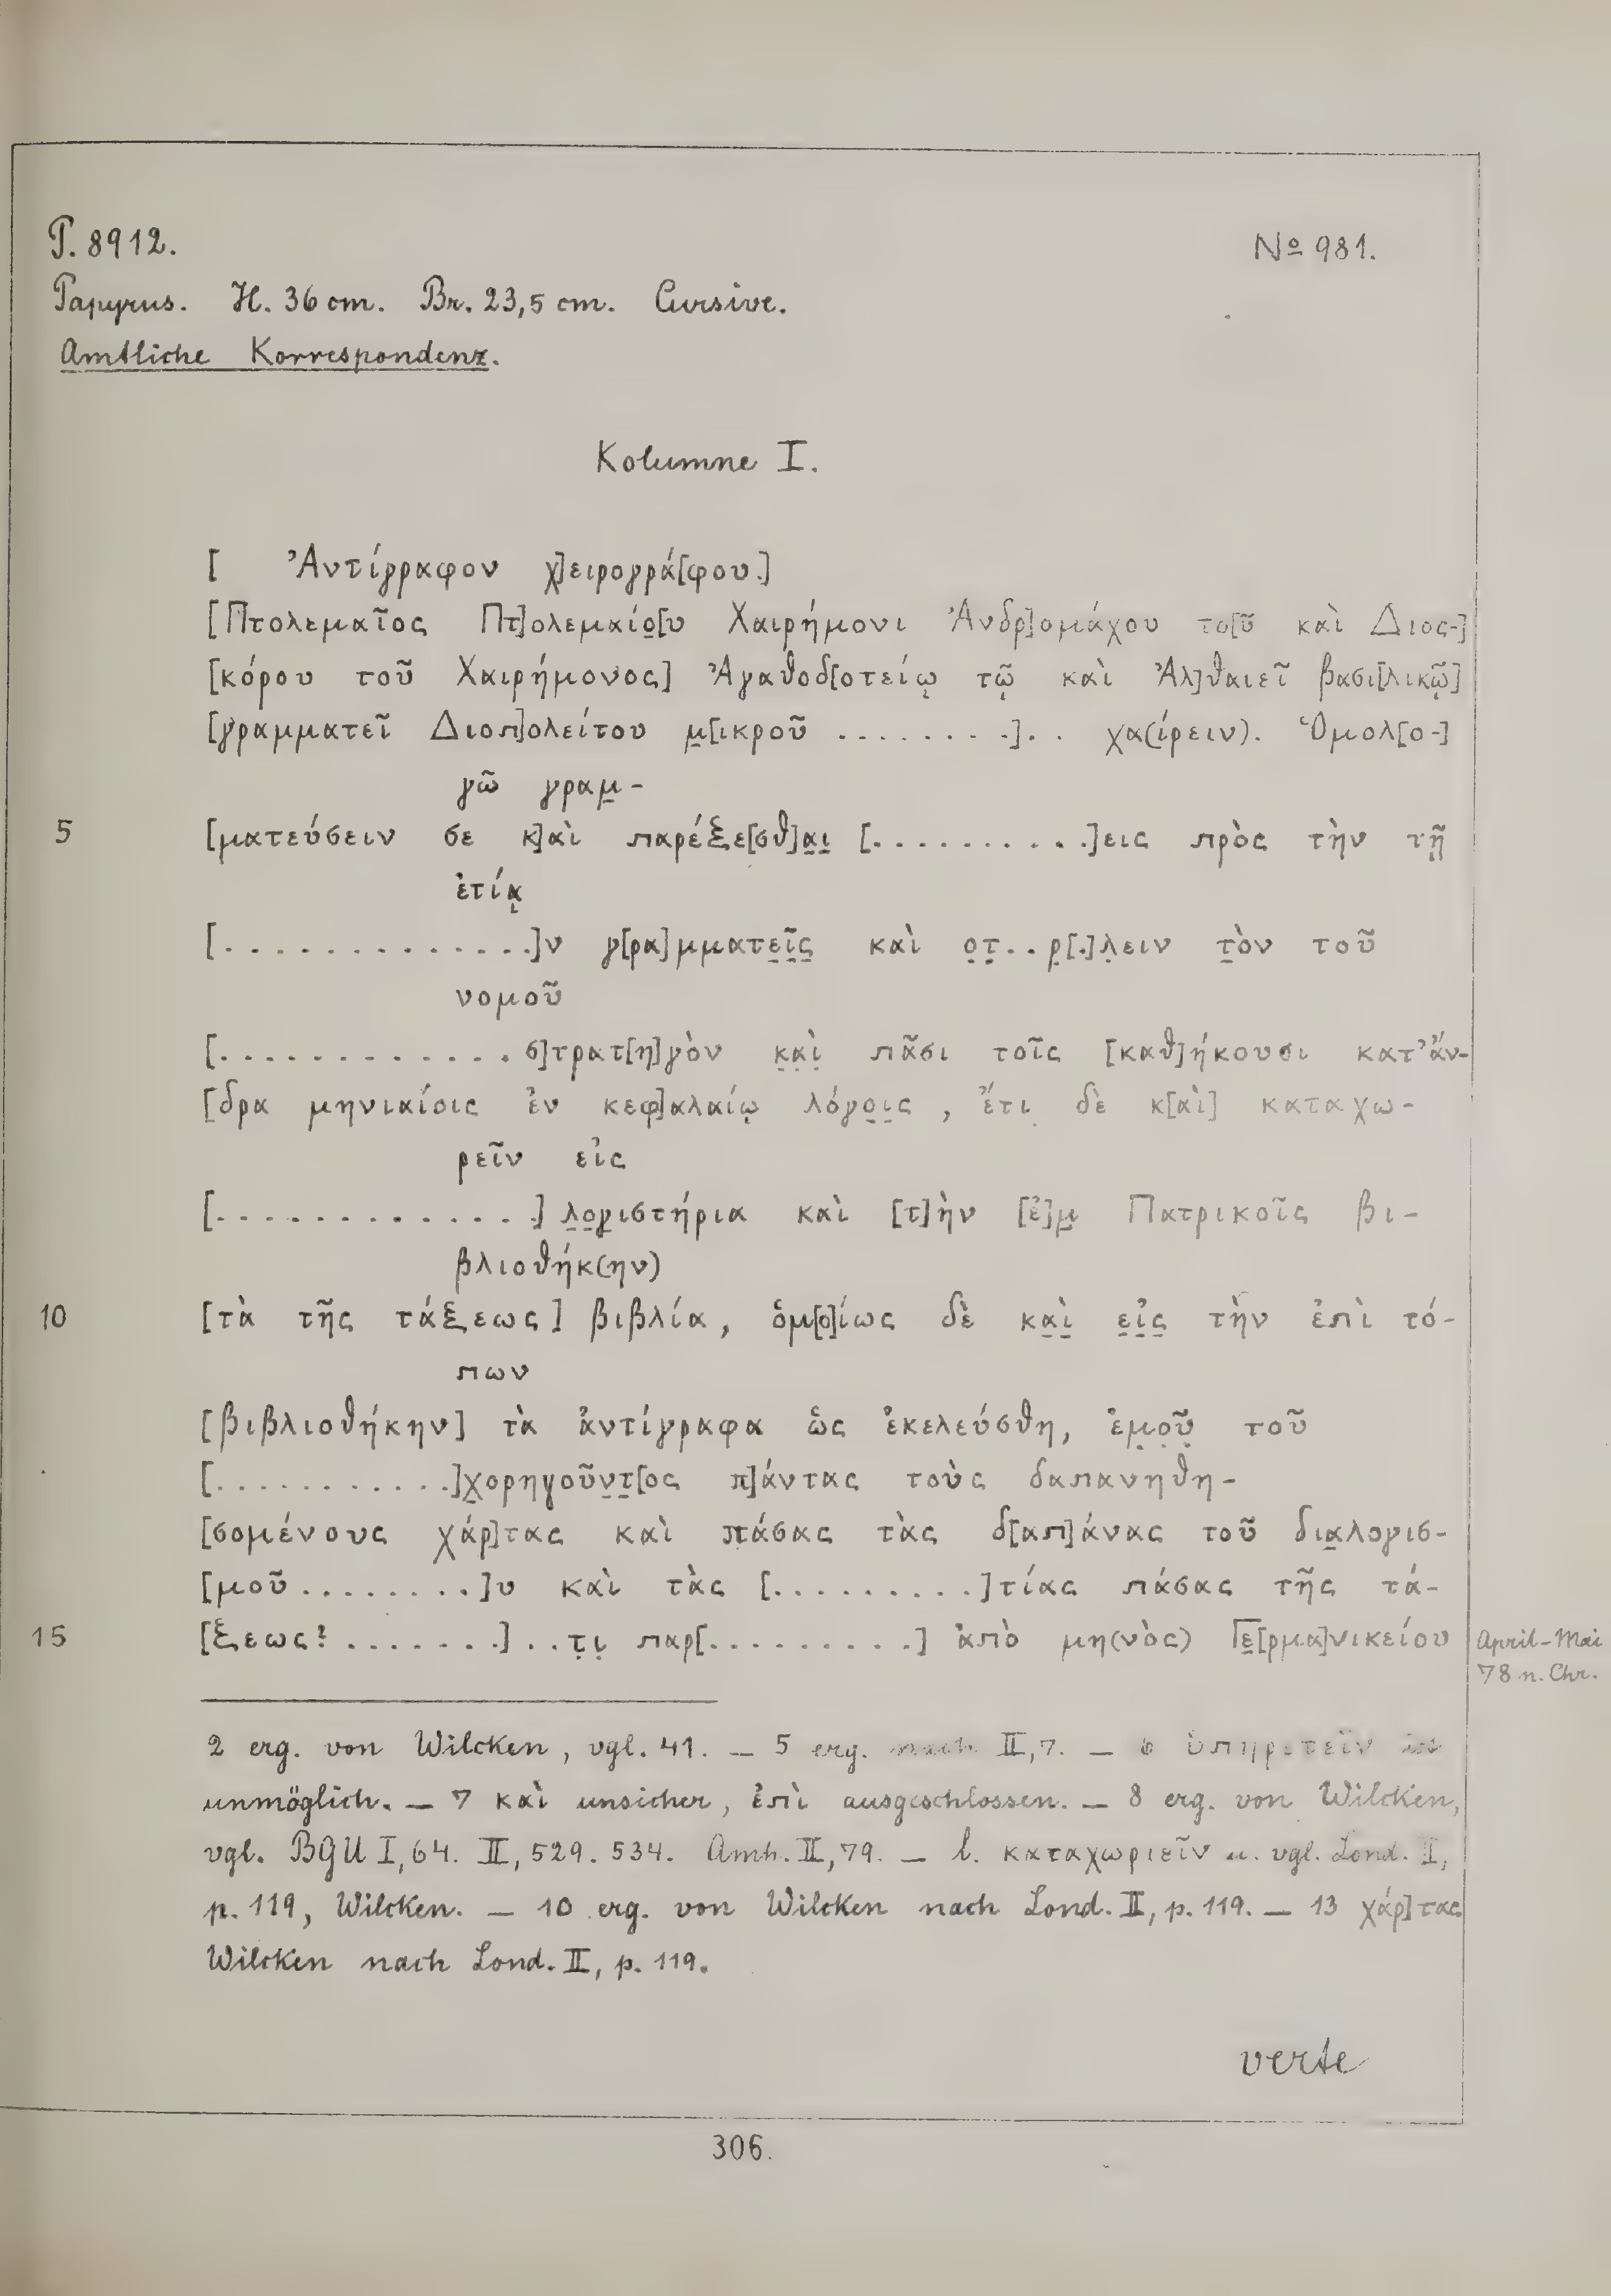 P. 8912. No 981.
Papyrus. H. 36 cm. Br. 23,5 cm. Cursive.
Amtliche Korrespondenz.
Kolumne I.
[ Ἀντίγραφον χ]ειρογρά[φου.]
[Πτολεμαῖος Πτ]ολεμαίο̣[υ Χαιρήμονι Ἀνδρ]ομάχου το[ῦ καὶ Διοσ-]
[κόρου τοῦ Χαιρήμονος] Ἀγαθοδ[οτείῳ τῷ καὶ Ἀλ]θαιεῖ βασι[λικῷ]
[γραμματεῖ Διοπ]ολείτου μ̣[ικροῦ ........]. . χα(ίρειν). Ὁμολ[ο-]
γῶ γραμ̣-
5 [ματεύσειν σε κ]αὶ παρέξε[σθ]α̣ι̣ [...........]εις πρὸς τὴν τῇ
ἐτίᾳ̣
[..............]ν γ[ρα]μματε̣ῖ̣ς̣ καὶ ο̣τ̣..ρ̣[.]λ̣ειν τ̣ὸν τοῦ
νομοῦ
[............. σ]τρατ[η]γὸν κ̣α̣ὶ̣ πᾶσι τοῖς [καθ]ήκουσι κατ’ἄν-
[δρα μηνιαίοις ἐν κεφ]αλαίῳ λόγο̣ι̣ς, ἔτι δὲ κ[αὶ] καταχω-
ρεῖν εἰς
[..............] λ̣ο̣γ̣ιστήρια καὶ [τ]ὴν [ἐ]μ̣ Πατρικοῖς βι-
βλιοθήκ(ην)
10 [τὰ τῆς τάξεως] βιβλία, ὁμ[ο]ίως δὲ κα̣ὶ̣ ε̣ἰ̣ς̣ τὴν ἐπὶ τό-
πων
[βιβλιοθήκην] τὰ ἀντίγραφα ὡς ἐκελεύσθη, ἐμ̣ο̣ῦ̣ τοῦ
[............]χ̣ορηγοῦν̣τ̣[ος π]άντας τοὺς δαπανηθη-
[σομένους χάρ]τας καὶ πάσας τὰς δ[απ]άνας τοῦ δια̣λογισ-
[μοῦ.........]υ καὶ τὰς [.........]τίας πάσας τῆς τά-
15 [ξεως? .......] ..τ̣ι̣ παρ[..........] ἀπὸ μη(νὸς) Γε̣[ρμα]νικείου April-Mai
78 n. Chr.
2 erg. von Wilcken, vgl. 41. — 5 erg. nach II,7. — 6 ὑπηρετεῖν ist
unmöglich. — 7 καὶ unsicher, ἐπὶ ausgeschlossen. — 8 erg. von Wilcken,
vgl. BGU I,64. II,529. 534. Amh. II,79. — l. καταχωριεῖν u. vgl. Lond. II,
p. 119, Wilcken. — 10 erg. von Wilcken nach Lond. II, p. 119. — 13 χάρ]τας
Wilcken nach Lond. II, p. 119.
verte
306.